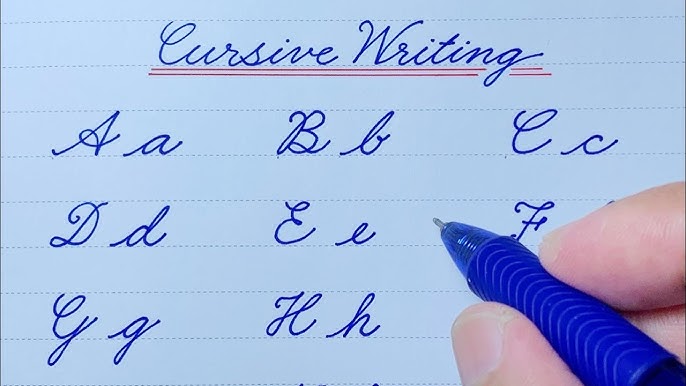 Cursive Writing
A a B b C c
D d E e F
G g H h